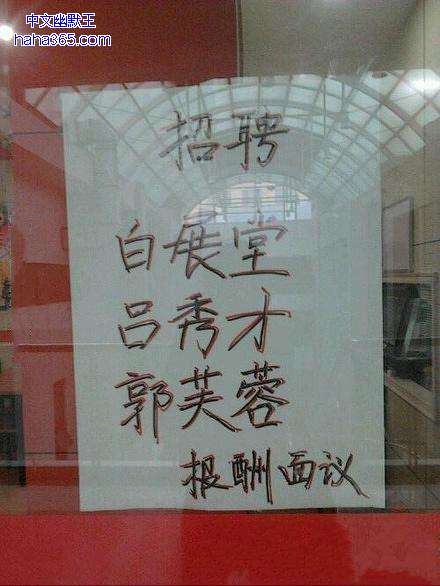 中文幽默王
haha365.com
招聘
白展堂
吕秀才
郭芙蓉
报酬面议